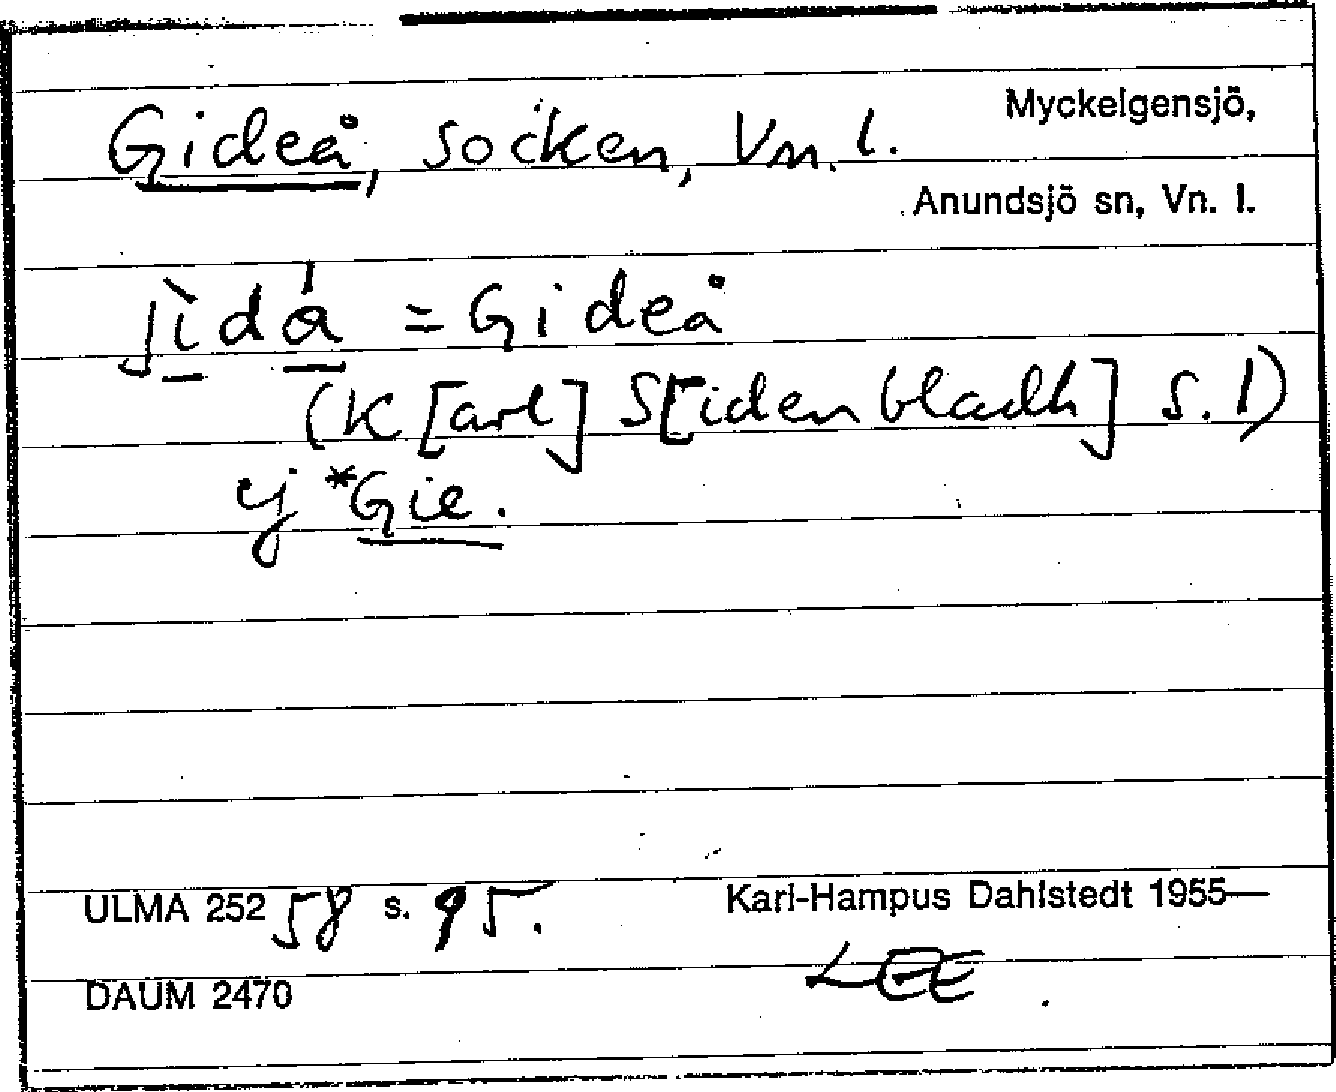 Myckelgensjö,
Gideå, socken, Vn. l.
Anundsjö sn, Vn. l.
jìdá = Gideå
(K[arl] S[idenbladh] s. 1)
ej *Gie.
ULMA 252 58 s. 95. Karl-Hampus Dahlstedt 1955—
LEE
DAUM 2470